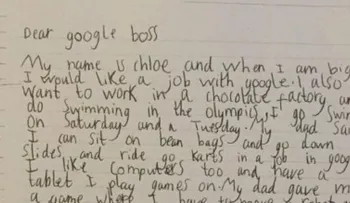 Dear google boss
My name is chloe and when I am big
I would like a job with google. I also
want to work in a chocolate factory and
do swimming in the olympics. I go Swim
on Saturday and a Tuesday. My dad
I can sit on bean bags and go down
slides and ride go karts in a job in goog
I like computers too and have a
tablet I play games on. My dad gave m
a game where I have to move a robot